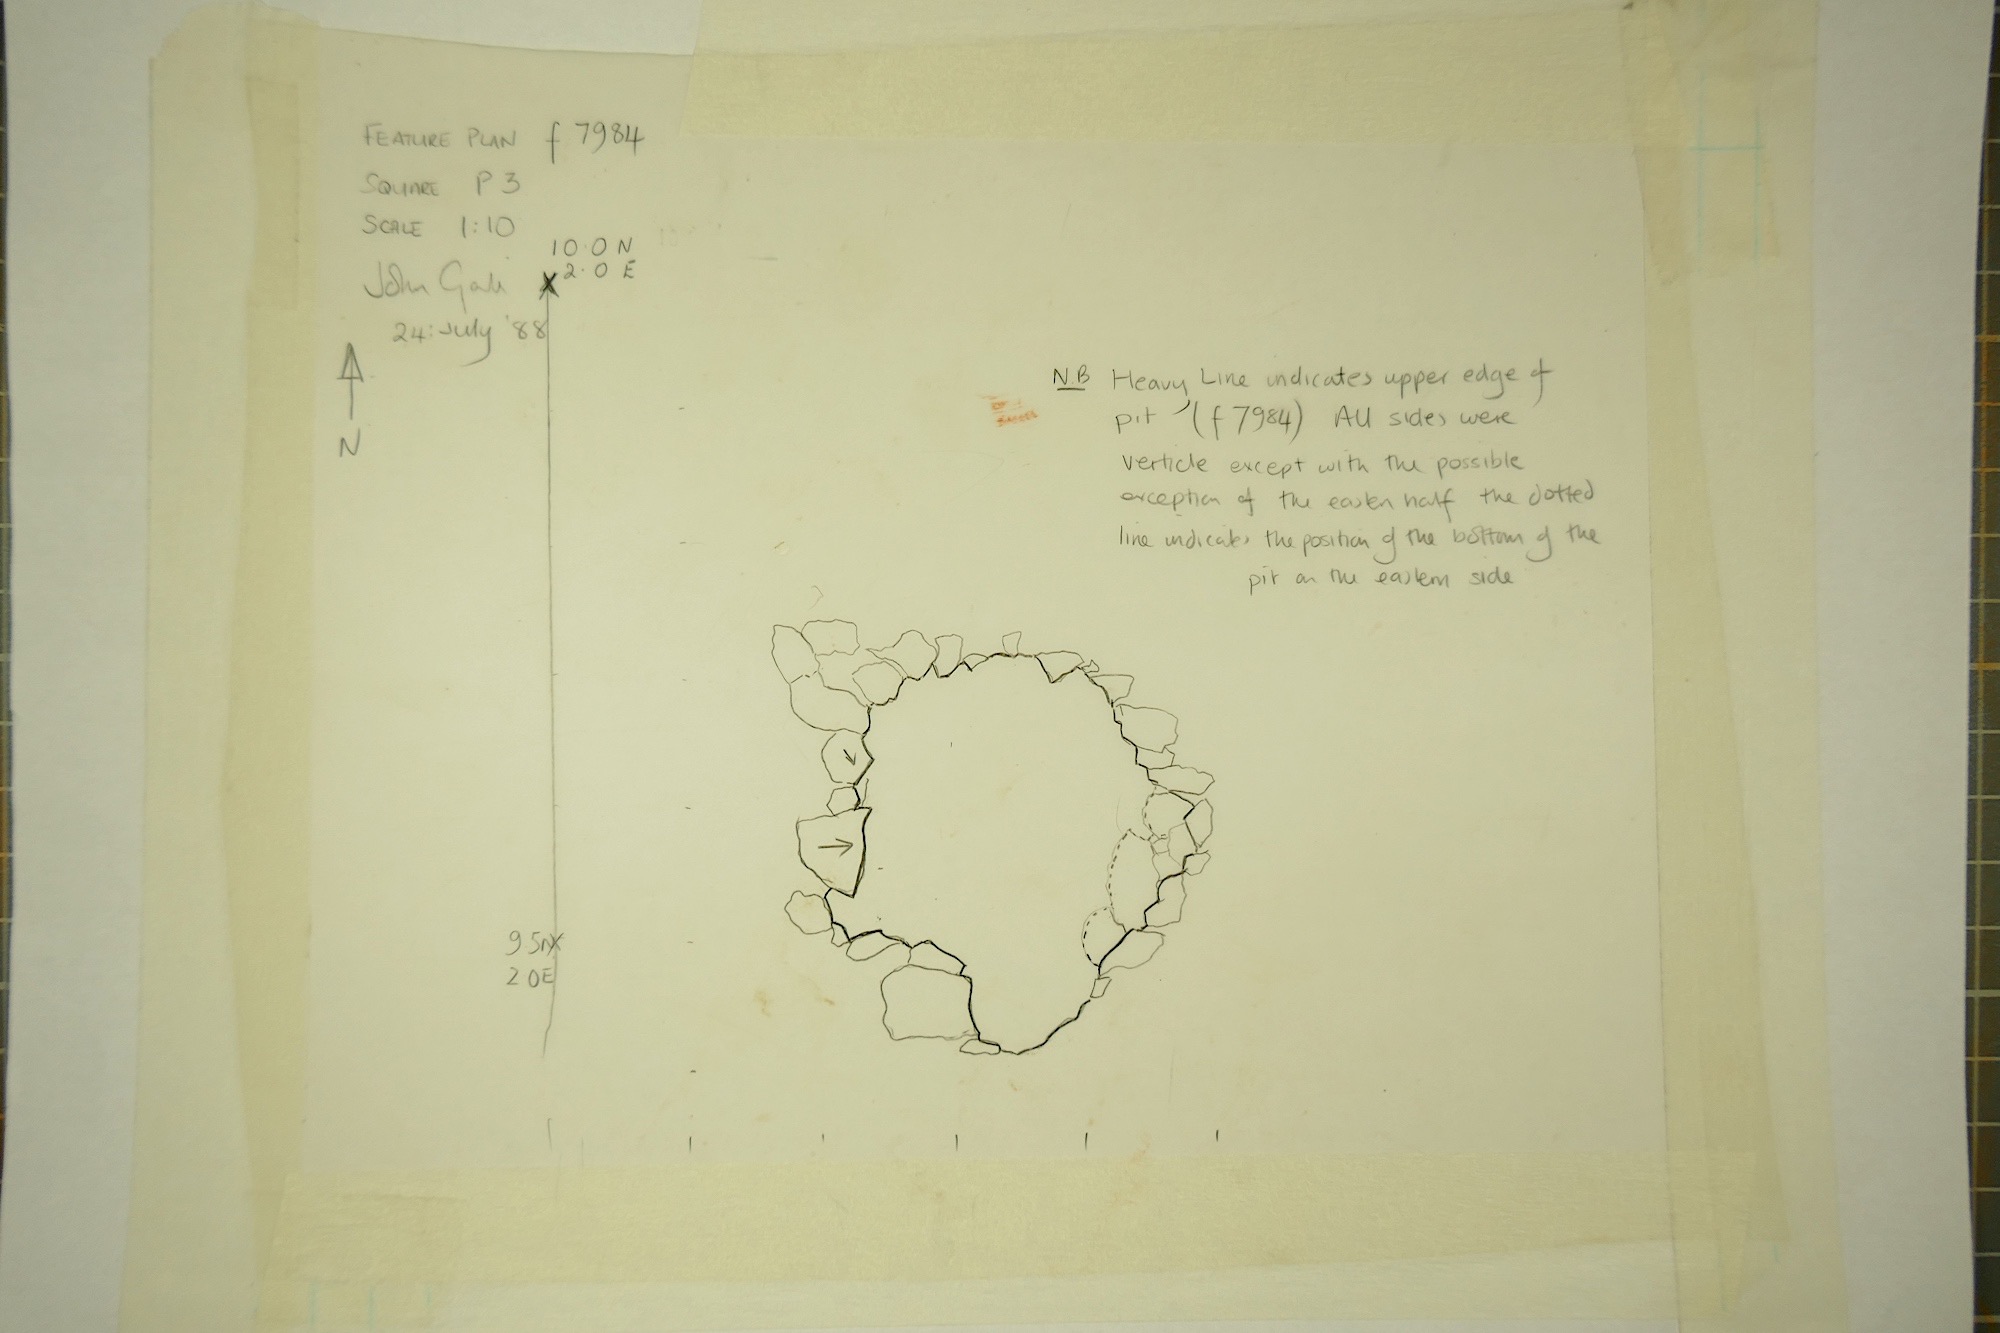 FEATURE PLAN f 7984
SQUARE P 3
SCALE 1:10
10.0 N
2.0 E
John Gale
24: July '88
N
N.B Heavy Line indicates upper edge of
pit (f 7984) All sides were
verticle except with the possible
exception of the eastern half the dotted
line indicates the position of the bottom of the
pit on the eastern side
9 5N
2 0E